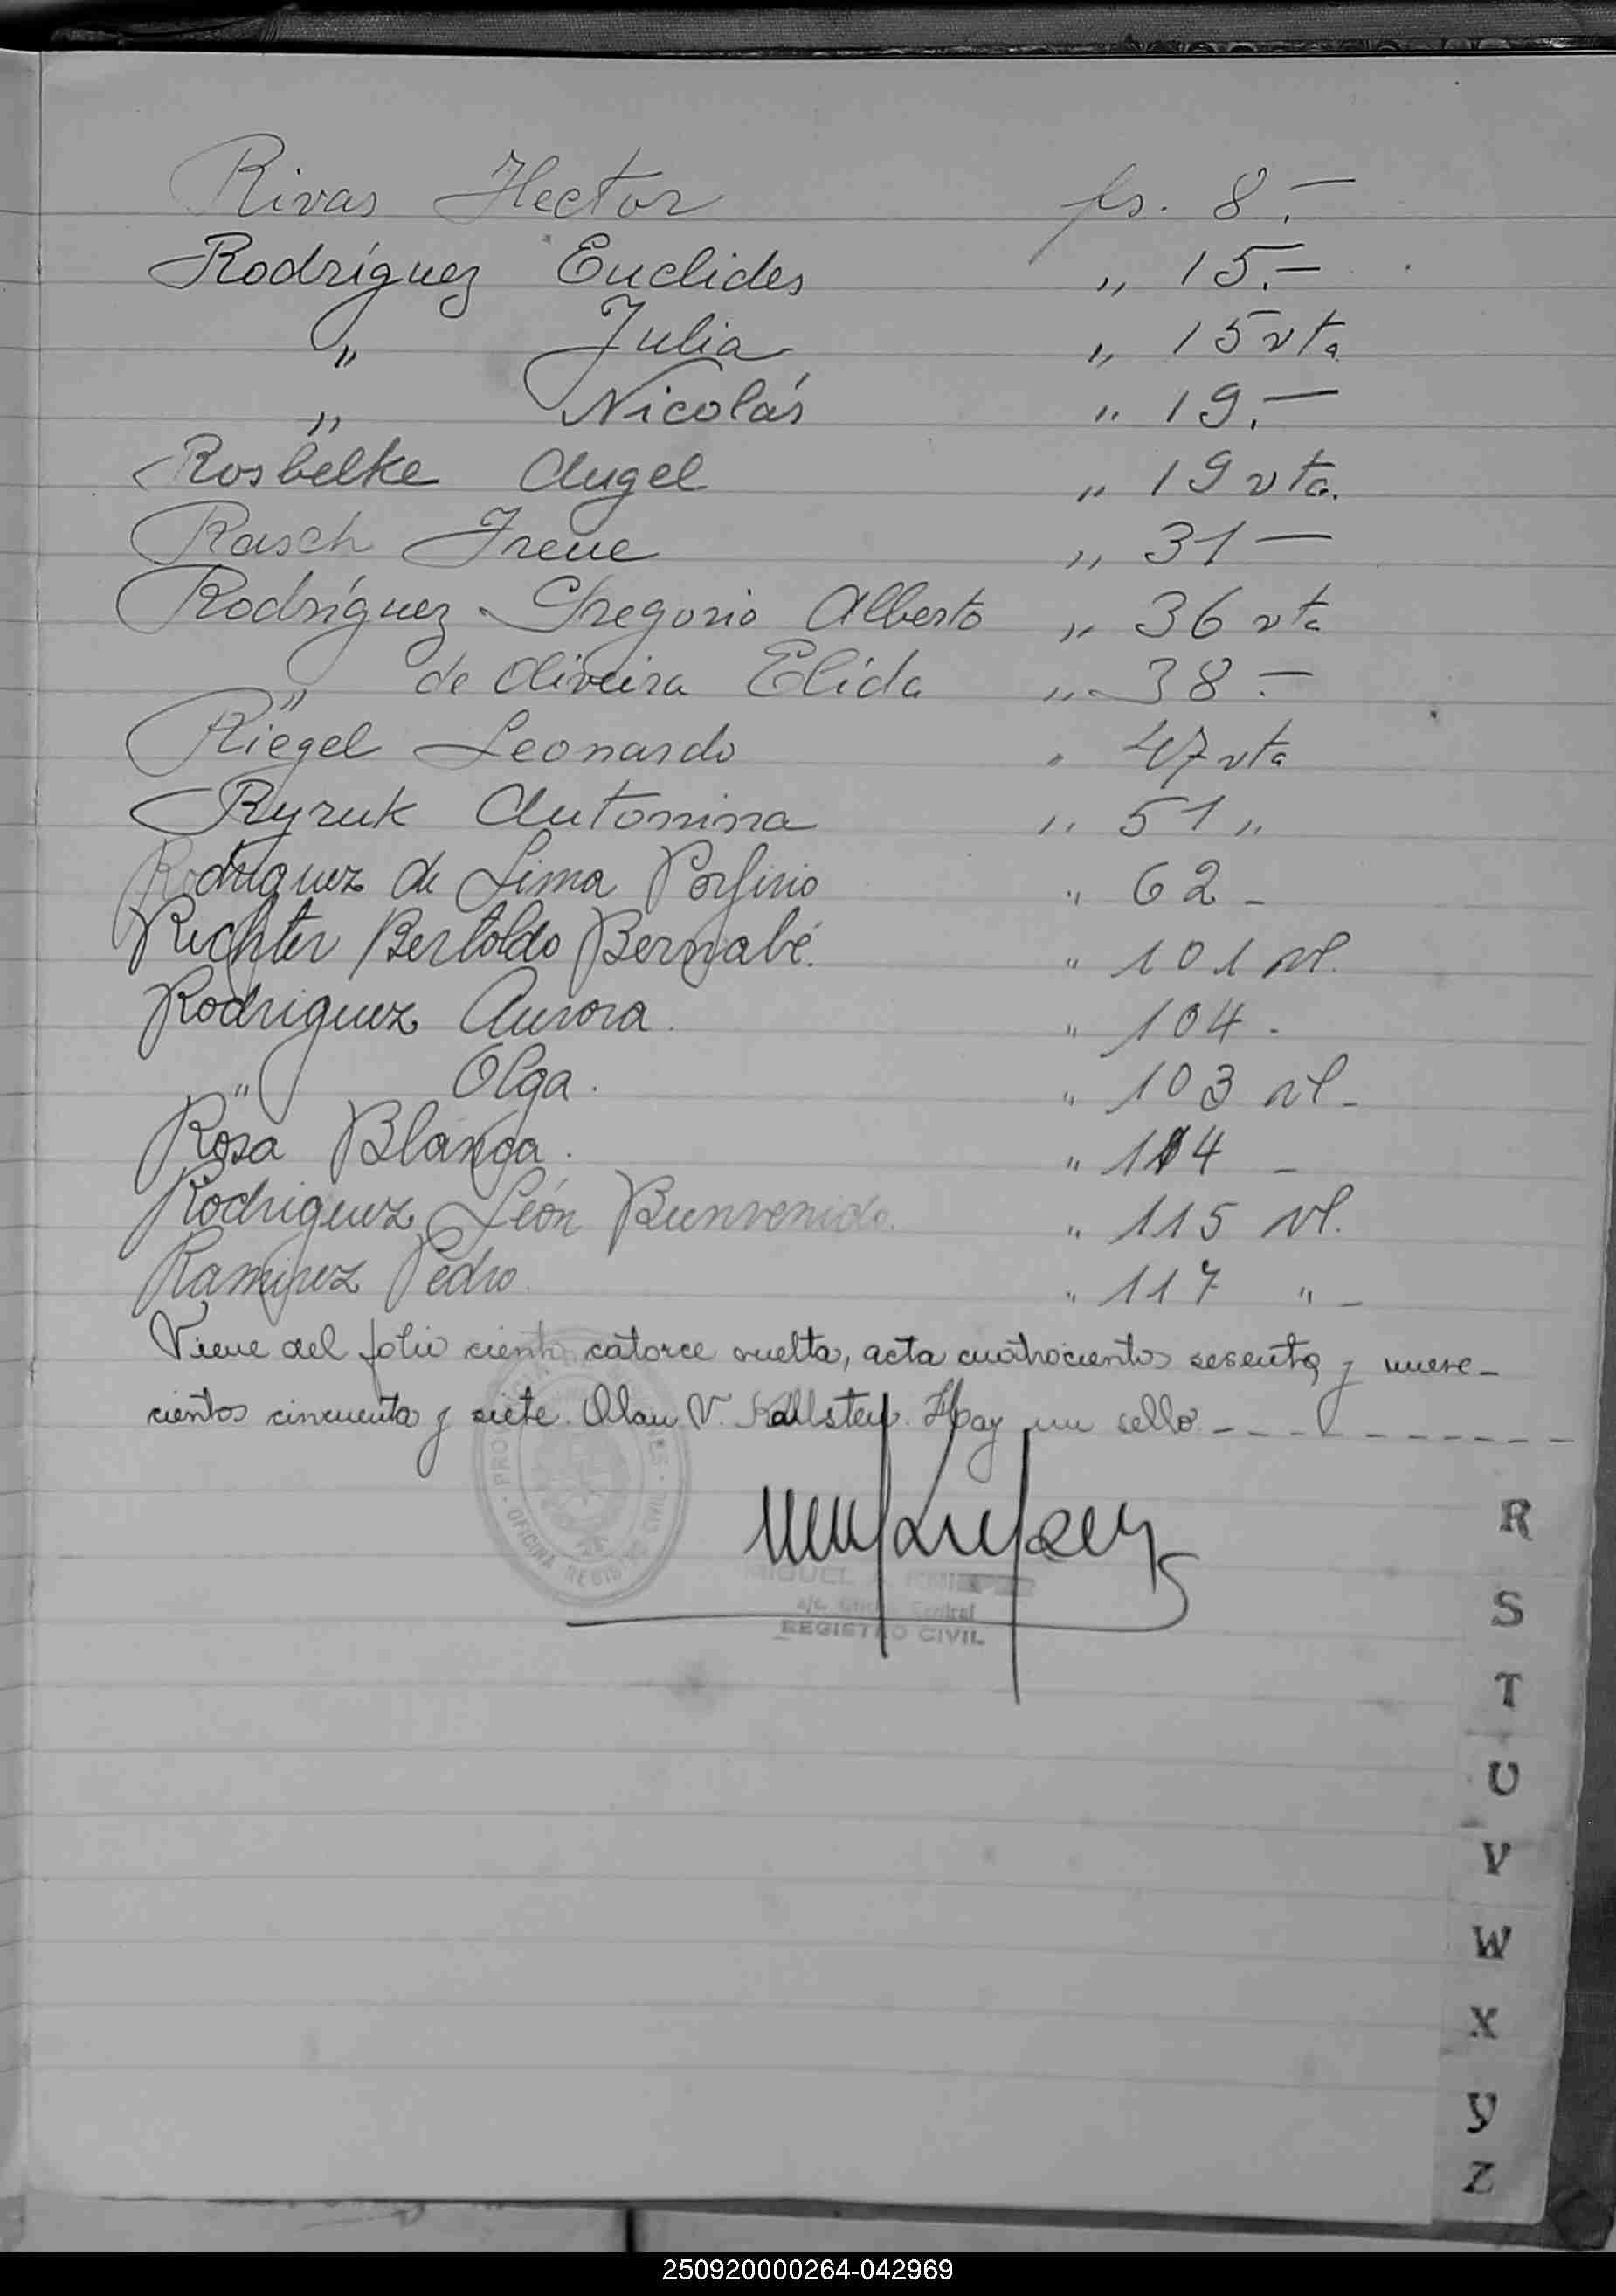 Rivas Hector fs. 8.—
Rodríguez Euclides „ 15.—
„ Julia „ 15 vta
„ Nicolás „ 19.—
Rosbelke Angel „ 19 vta.
Rasch Irene „ 31 —
Rodríguez Gregorio Alberto „ 36 vta
„ de Oliveira Elída „ 38.—
Riegel Leonardo „ 47 vta
Ryzuk Antonina „ 51 „
Rodriguez de Lima Porfirio „ 62 -
Richter Bertoldo Bernabé. „ 101 vt.
Rodriguez Aurora. „ 104 -
„ Olga. „ 103 vt -
Rosa Blanca. „ 114 -
Rodriguez León Bienvenido. „ 115 vt.
Ramirez Pedro. „ 117 „ -
Viene del folio ciento catorce vuelta, acta cuatrocientos sesenta y nueve-
cientos cincuenta y siete. Olau V. Kallsten. Hay un sello. - - - - - - - - -
OFICINA REGISTRO CIVIL
MIGUEL
Central
REGISTRO CIVIL
R
S
T
U
V
W
X
Y
Z
250920000264-042969